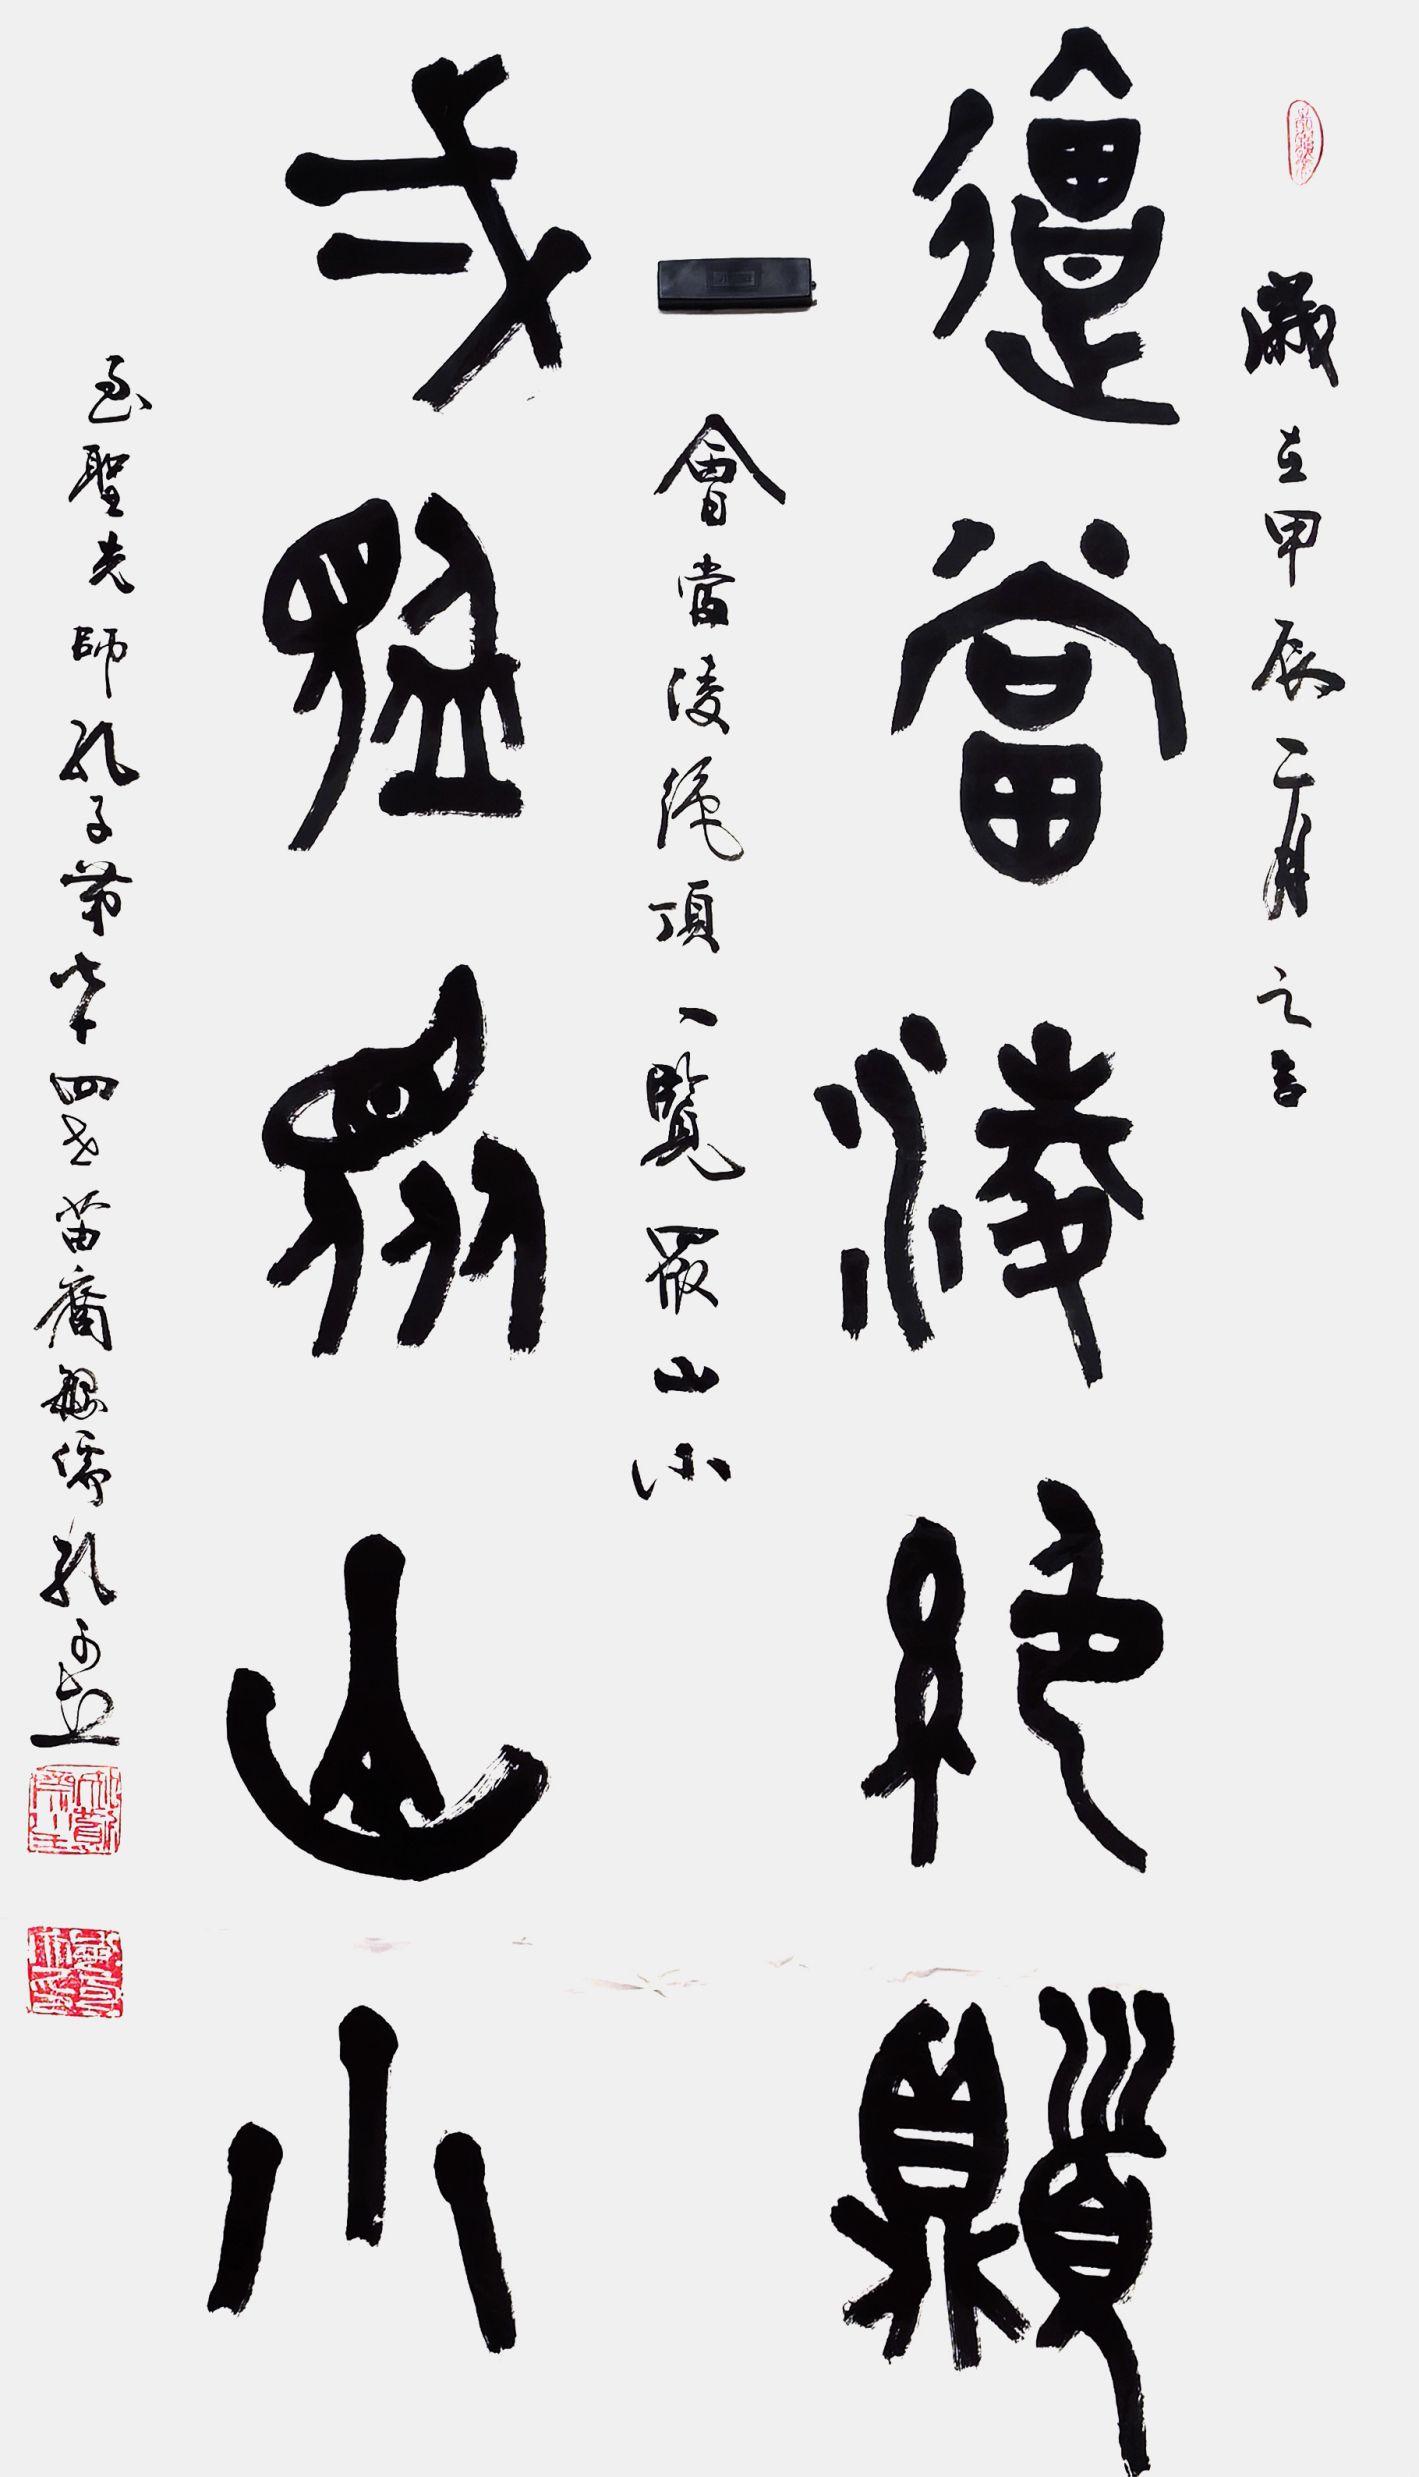 歲在甲辰二月之吉
會當凌絕頂
會當凌絕頂一覽眾山小
弌覽眾山小
至聖先師孔子第七十四世苗裔